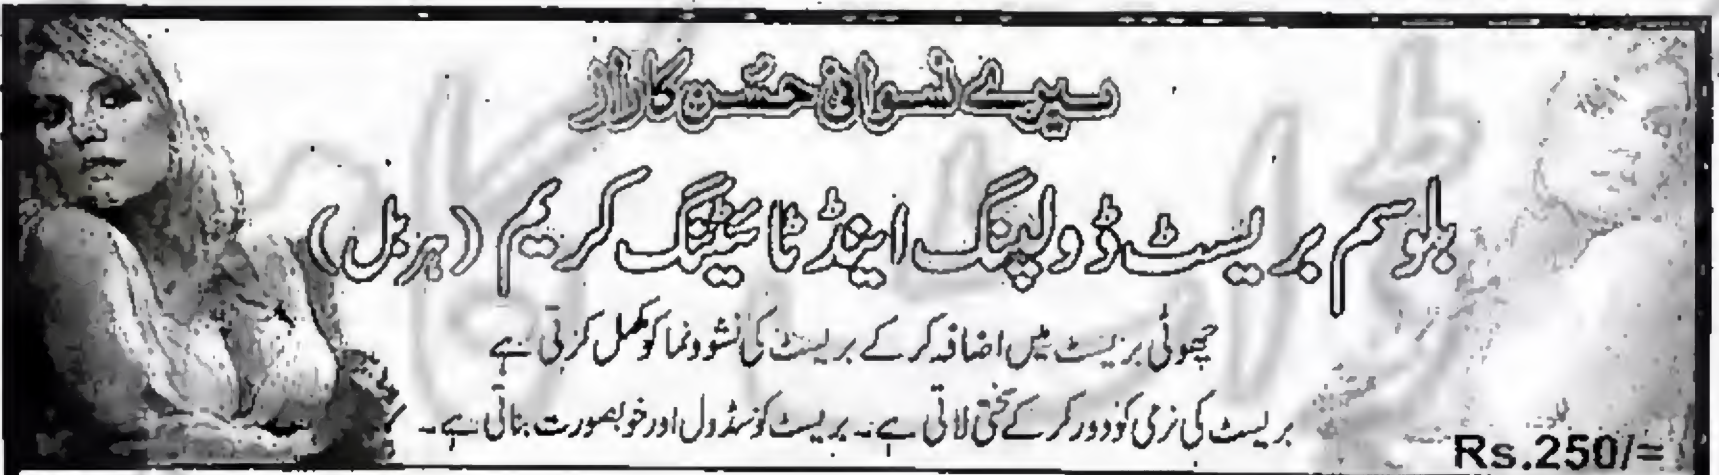 میرے نسوانی حُسن کا راز
بلوسم بریسٹ ڈولپنگ اینڈ ٹائیٹنگ کریم (ہربل)
چھوٹی بریسٹ میں اضافہ کر کے بریسٹ کی نشوونما کو مکمل کرتی ہے
بریسٹ کی نرمی کو دور کر کے سختی لاتی ہے۔ بریسٹ کو سڈول اور خوبصورت بناتی ہے۔
Rs.250/=